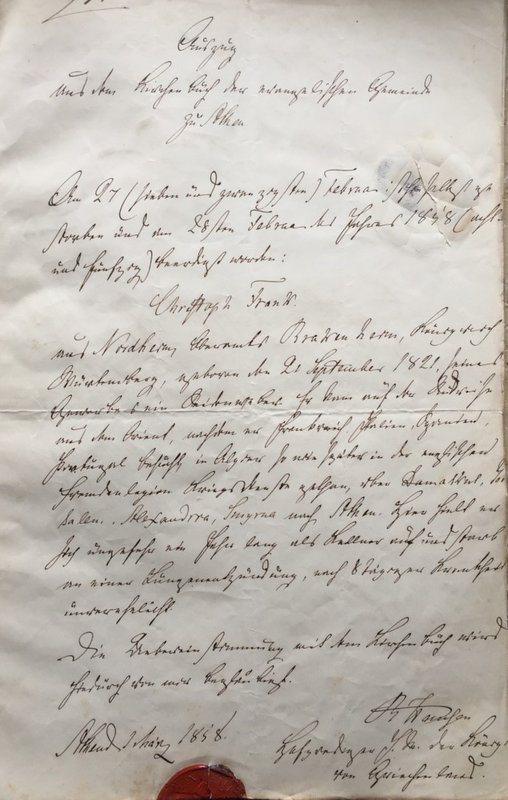 Auszug
aus dem Kirchenbuch der evangelischen Gemeinde
zu Athen
Am 27 (sieben und zwanzigsten) Februar ist hieselbst ge
storben und am 28sten Februar des Jahres 1858 (acht
und fünfzig) beerdigt worden:
Christoph Frank
aus Nordheim, Oberamts Brakenheim, Königreich
Würtemberg, geboren den 21 September 1821, seines
Gewerbes ein Seidenweber. Er kam auf der Rückreise
aus dem Orient, nachdem er Frankreich Italien, Spanien,
Portugal besucht, in Algier so wie später in der englischen
Fremdenlegion Kriegsdienste gethan, über Damaskus, Jeru
salem, Alexandria, Smyrna nach Athen. Hier hielt er
sich ungefehr ein Jahr lang als Kellner auf und starb
an einer Lungenentzündung, nach 8tägiger Krankheit
unverehelicht.
Die Uebereinstimmung mit dem Kirchenbuch wird
hiedurch von mir beglaubigt.
Athen d. März 1858.
Hofprediger I. M. der Königin
von Griechenland.